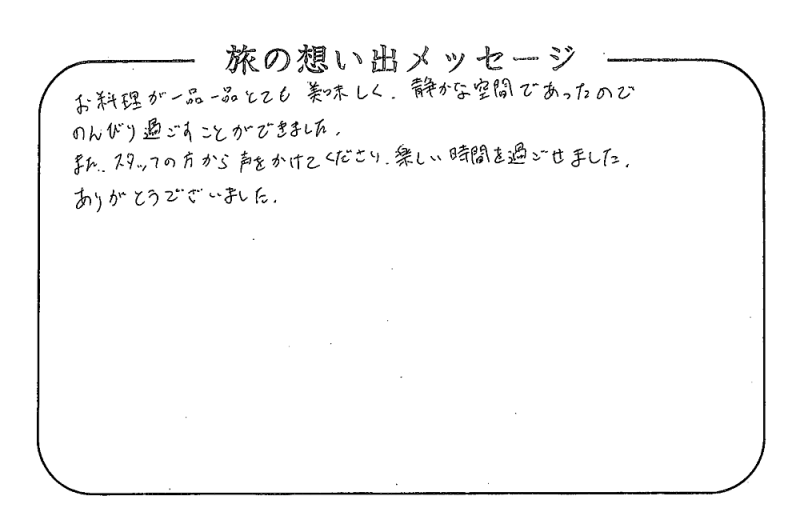 旅の想い出メッセージ
お料理が一品一品とても美味しく、静かな空間であったので
のんびり過ごすことができました。
また、スタッフの方から声をかけてくださり、楽しい時間を過ごせました。
ありがとうございました。